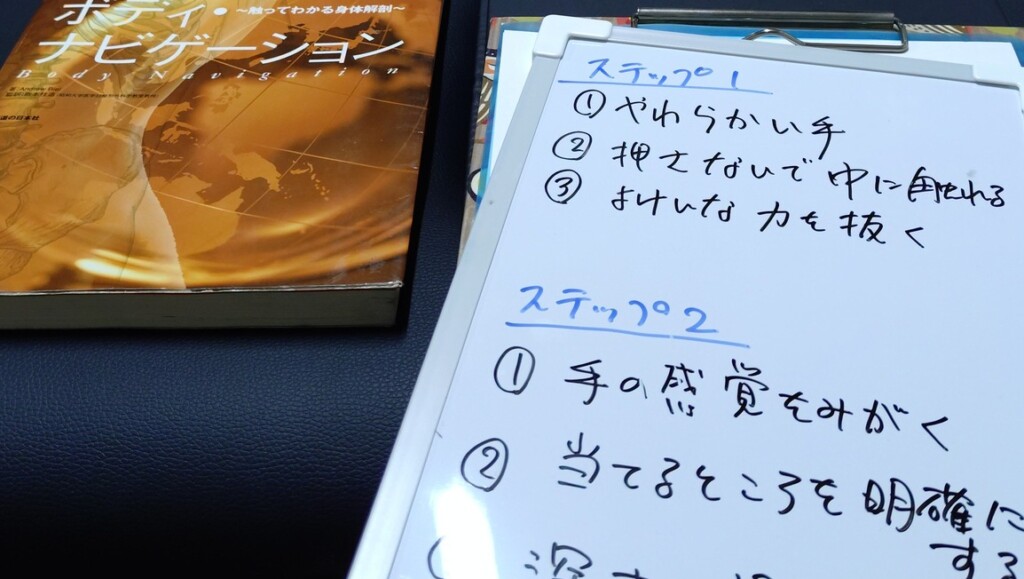 ボディ・
〜触ってわかる身体解剖〜
ナビゲーション
Body Navigation
ステップ1
① やわらかい手
② 押さないで中に触れる
③ よけいな力を抜く
ステップ2
① 手の感覚をみがく
② 当てるところを明確に
する
深さ